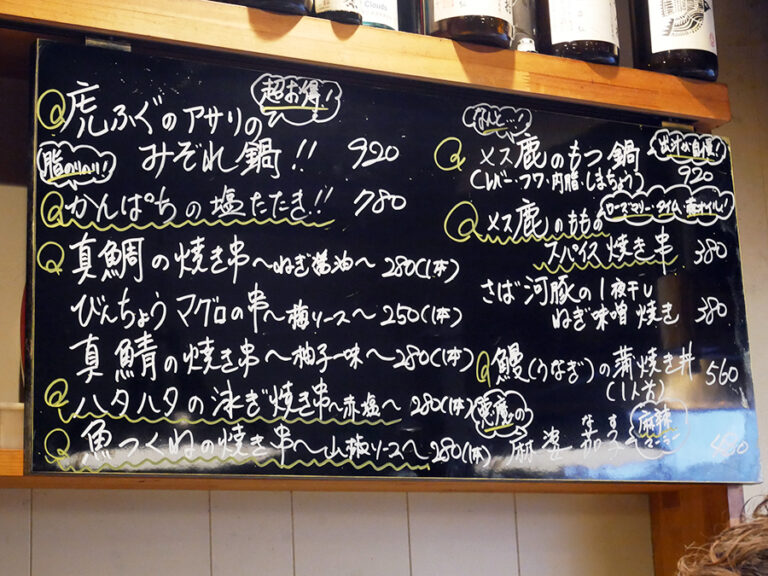 超お得!
虎ふぐのアサリの
みぞれ鍋!! 920
脂のりのり!
かんぱちの塩たたき!! 780
真鯛の焼き串〜ねぎ醤油〜280(1本)
びんちょうマグロの串〜梅ソース〜250(1本)
真鯖の焼き串〜柚子一味〜280(1本)
ハタハタの泳ぎ焼き串〜赤塩〜280(1本)
魚つくねの焼き串〜山椒ソース〜280(1本)
なんと…!
メス鹿のもつ鍋
出汁が自慢!
(レバー・フワ・内脂・しまちょう) 920
ローズマリー・タイム・
メス鹿のももの
スパイス焼き串 380
さば河豚の1夜干し
ねぎ味噌焼き 380
鰻(うなぎ)の蒲焼き丼 560
(1人前)
麻婆茄子
なす
麻辣
マーラー
Clouds